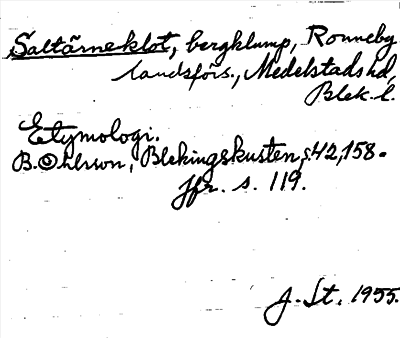 Saltärneklöt, bergklump, Ronneby
landsförs., Medelstads hd,
Blek. l.
Etymologi.
B. Ohlsson, Blekingskusten, s. 42, 158.
Jfr. s. 119.
J. St. 1955.